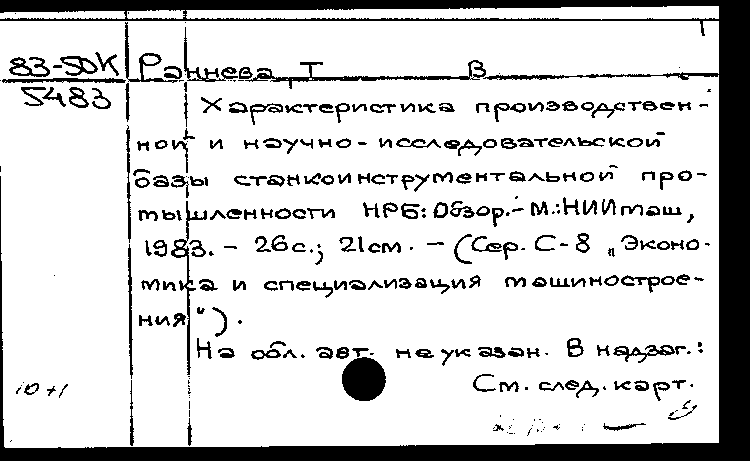 1
83-5DK Раннева Т В
5483 Характеристика производствен-
ной и научно-исследовательской
базы станкоинструментальной про-
мышленности НРБ: Обзор.- М.: НИИмаш,
1983. - 26с.; 21см. - (Сер. С-8 „Эконо-
мика и специализация машинострое-
ния").
На обл. авт. не указан. В надзаг.:
10+1 См. след. карт.